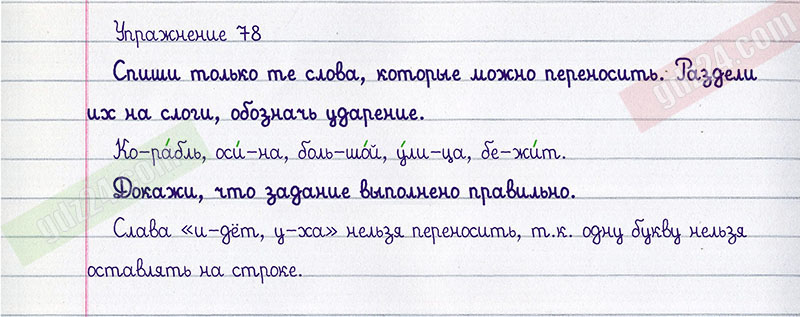 Упражнение 78
Спиши только те слова, которые можно переносить. Раздели
их на слоги, обозначь ударение.
Ко-ра́бль, оси́-на, боль-шо́й, у́ли-ца, бе-жи́т.
Докажи, что задание выполнено правильно.
Слава «и-дёт, у-ха» нельзя переносить, т.к. одну букву нельзя
оставлять на строке.
gdz24.com
gdz24.com